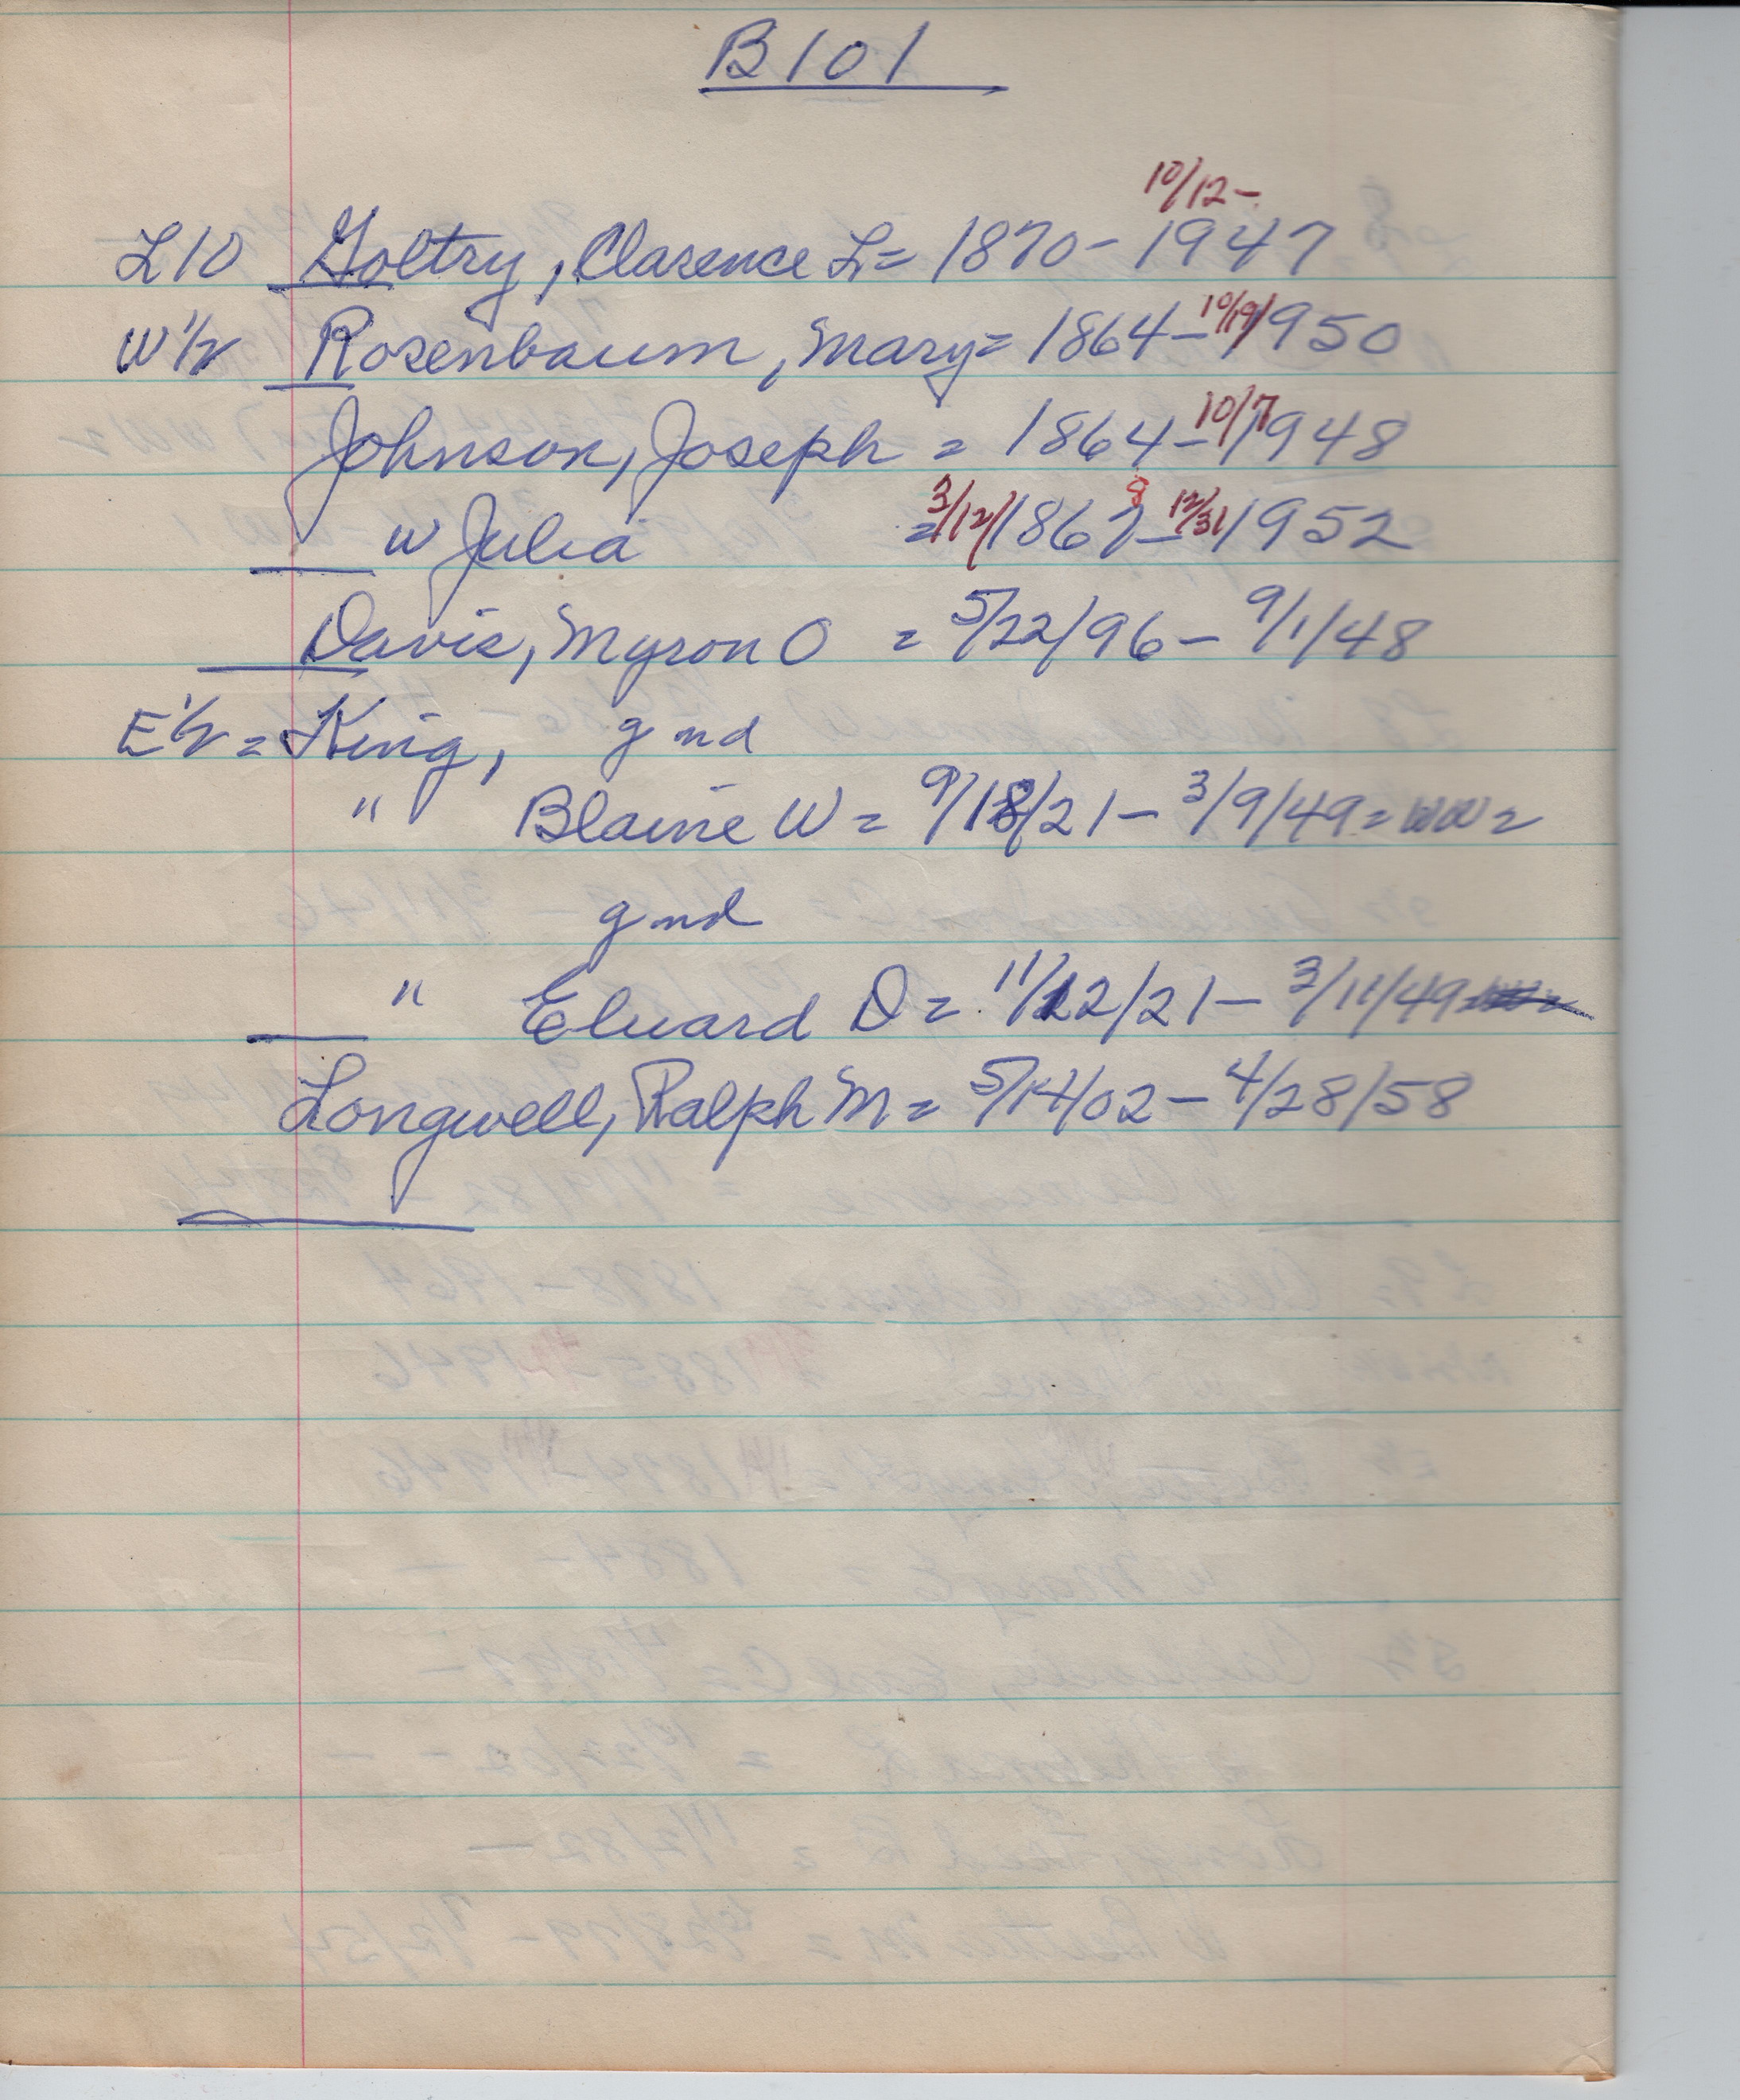 B101
10/12-
L10 Goltry, Clarence L= 1870-1947
W1/2 Rosenbaum, Mary= 1864-10/19/1950
Johnson, Joseph = 1864-10/7/1948
8
w Julia =3/12/1867-12/31/1952
Davis, Myron O = 5/22/96-9/1/48
E1/2= King, gnd
" Blaine W= 9/18/21-3/9/49=WW2
gnd
" Elward D= 11/22/21-3/11/49
Longwell, Ralph M= 5/14/02-4/28/58